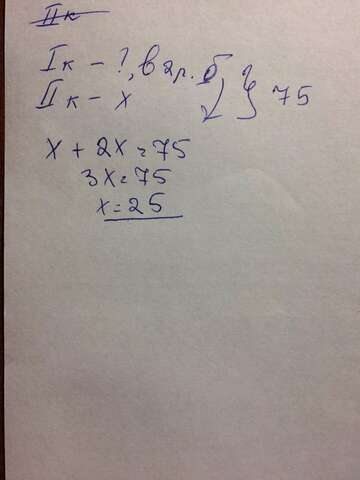 II к
I к - ?, в 2 р. б
II к - x } 75
x + 2x = 75
3x = 75
x = 25